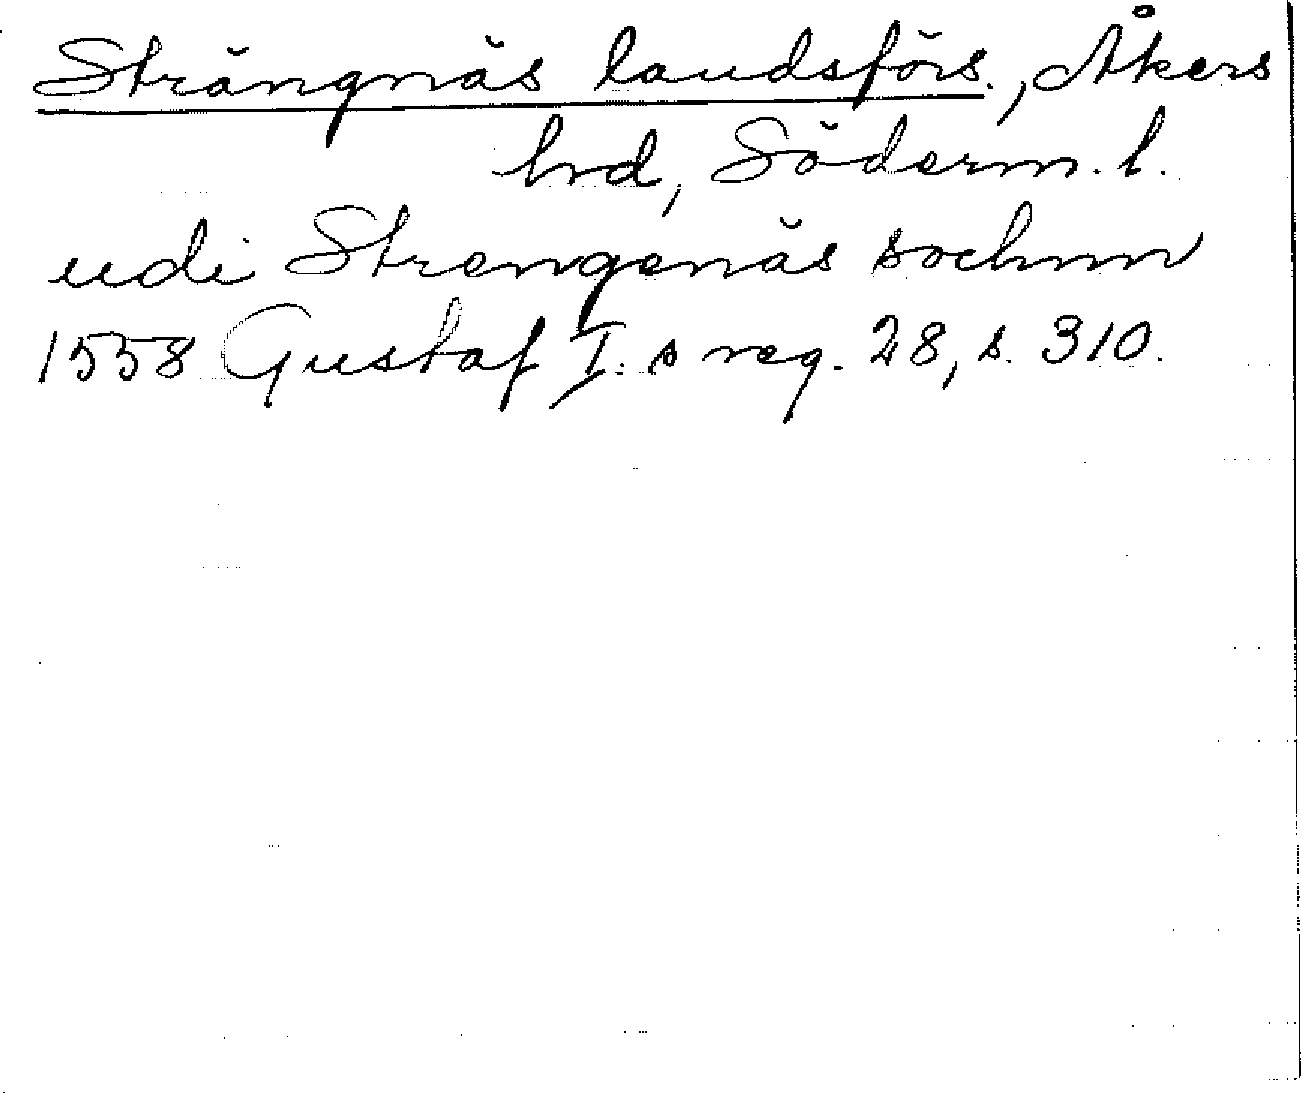 Strängnäs landsförs., Åkers
hrd, Söderm. l.
udi Strengenäs sochnn
1558 Gustaf I:s reg. 28, s. 310.